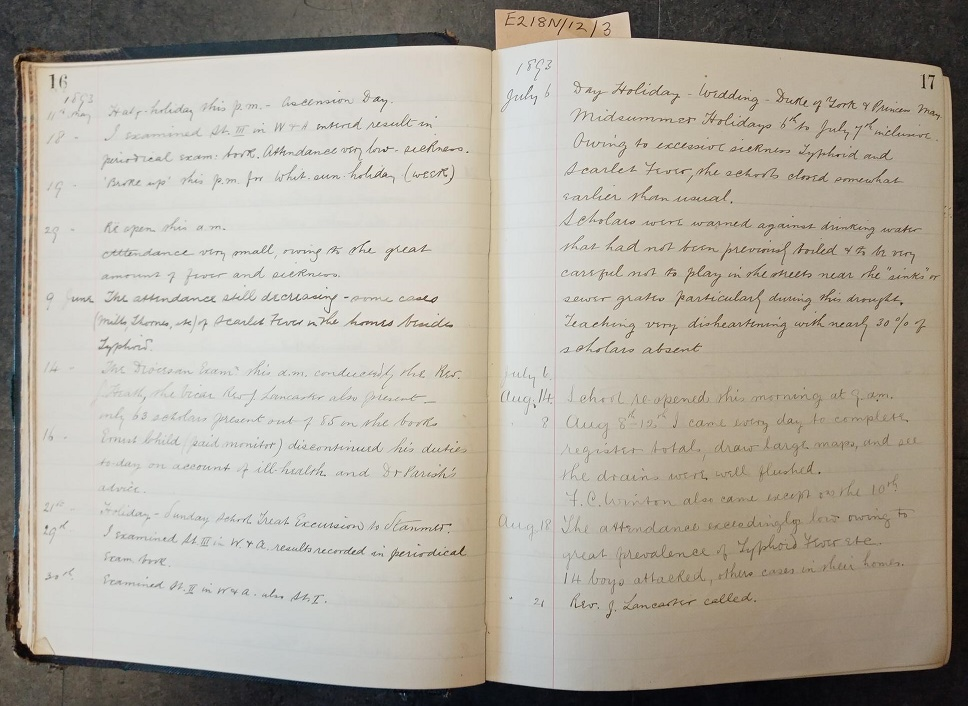 E218N/12/3
16
1893
11th May Half-holiday this p.m. - Ascension Day.
18 - I examined St. III in W & A entered result in
periodical exam: book. Attendance very low - sickness.
19 'Broke up' this p.m. for Whit-sun-holiday (week)
29 - Re open this a.m.
Attendance very small, owing to the great
amount of fever and sickness.
9 June The attendance still decreasing - some cases
(Mills, Thornes, etc) of Scarlet Fever in the homes besides
Typhoid.
14 - The Diocesan Exam this a.m. conducted by the Rev.
Heath, the Vicar Rev. J. Lancaster also present -
only 63 scholars present out of 85 on the books
16 - Ernest Child (paid monitor) discontinued his duties
today on account of ill-health and Dr Parish's
advice.
21st - Holiday - Sunday School Treat Excursion to Stanmer.
29th I examined St. III in W. & A. results recorded in periodical
Exam book.
30th Examined St. II in W & A. also St. I.
17
1893
July 6 Day Holiday - Wedding - Duke of York & Princess May.
Midsummer Holidays 6th to July 7th inclusive.
Owing to excessive sickness Typhoid and
Scarlet Fever, the schools closed somewhat
earlier than usual.
Scholars were warned against drinking water
that had not been previously boiled & to be very
careful not to play in the streets near the "sinks" or
sewer grates particularly during this drought.
Teaching very disheartening with nearly 30% of
scholars absent
July 6
Aug. 14 School re-opened this morning at 9 a.m.
" 8 Aug 8th-12th I came every day to complete
register totals, draw large maps, and see
the drains were well flushed.
F. C. Winton also came except on the 10th
Aug. 18 The attendance exceedingly low owing to
great prevalence of Typhoid Fever etc.
14 boys attacked, others cases in their homes.
" 21 Rev. J. Lancaster called.